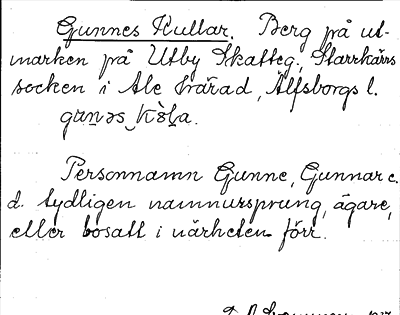 Gunnes Kullar. Berg på ut-
marken på Utby Skatteg., Starrkärrs
socken i Ale härad, Älfsborgs l.
gunəs kòla.
Personnamn Gunne, Gunnar e.
d. tydligen namnursprung, ägare,
eller bosatt i närheten förr.